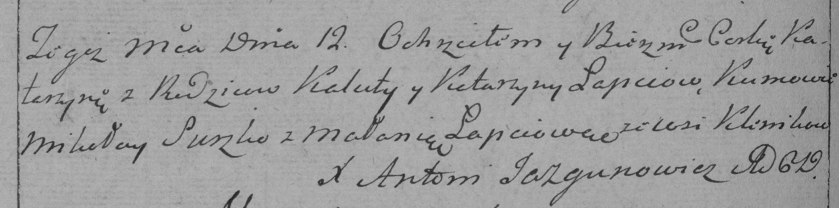 Tegoż Mca Dnia 12. Ochrzciłem y Bierzm Corkę Ka-
tarzynę z Rodzicow Kaluty y Katarzyny Łapciow, Kumowie
Mikołay Suszko z Małanią Łapciową ze wsi Klinikow
X Antoni Jazgunowicz